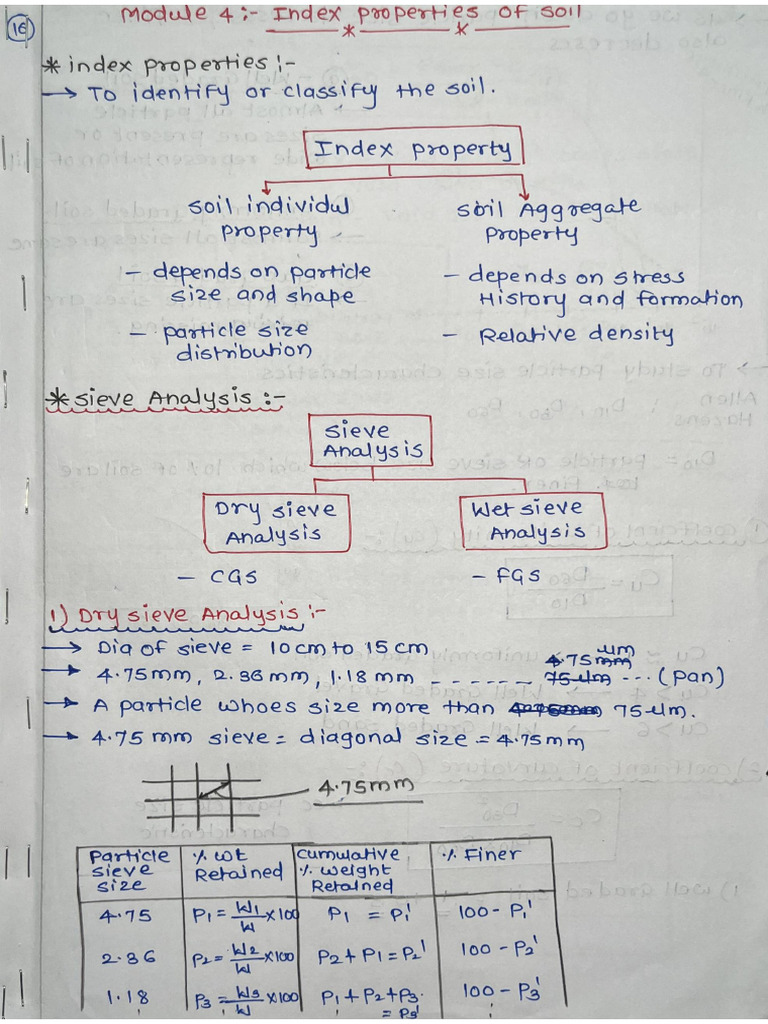 16
Module 4:- Index Properties of soil
* index properties :-
→ To identify or classify the soil.
Index property
soil individul
property
- depends on particle
size and shape
- particle size
distribution
soil Aggregate
property
- depends on stress
History and formation
- Relative density
* sieve Analysis :-
sieve
Analysis
Dry sieve
Analysis
- CGS
Wet sieve
Analysis
- FGS
1) Dry sieve Analysis :-
→ Dia of sieve = 10 cm to 15 cm
→ 4.75mm, 2.36 mm, 1.18 mm ------ 75 μm --- (pan)
→ A particle whoes size more than 75 μm.
→ 4.75 mm sieve = diagonal size = 4.75mm
4.75mm
Particle sieve size | % wt Retained | cumulative % weight Retained | % Finer
4.75 | P1 = W1/W x100 | P1 = P1' | 100 - P1'
2.36 | P2 = W2/W x100 | P2 + P1 = P2' | 100 - P2'
1.18 | P3 = W3/W x100 | P1 + P2 + P3 = P3' | 100 - P3'